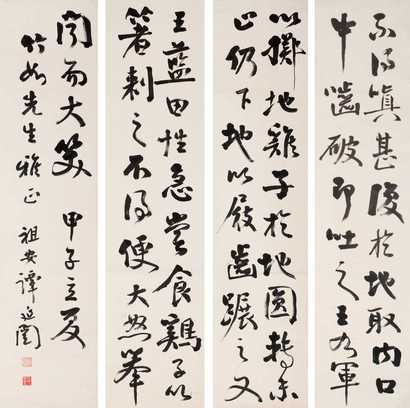 不得瞋甚復於地取內口
中齧破即吐之王右軍
以擲地雞子於地圓轉未
止仍下地以屐齒蹍之又
王藍田性急嘗食鷄子以
箸刺之不得便大怒舉
聞而大笑 甲子立夏
竹如先生雅正 祖安譚延闓